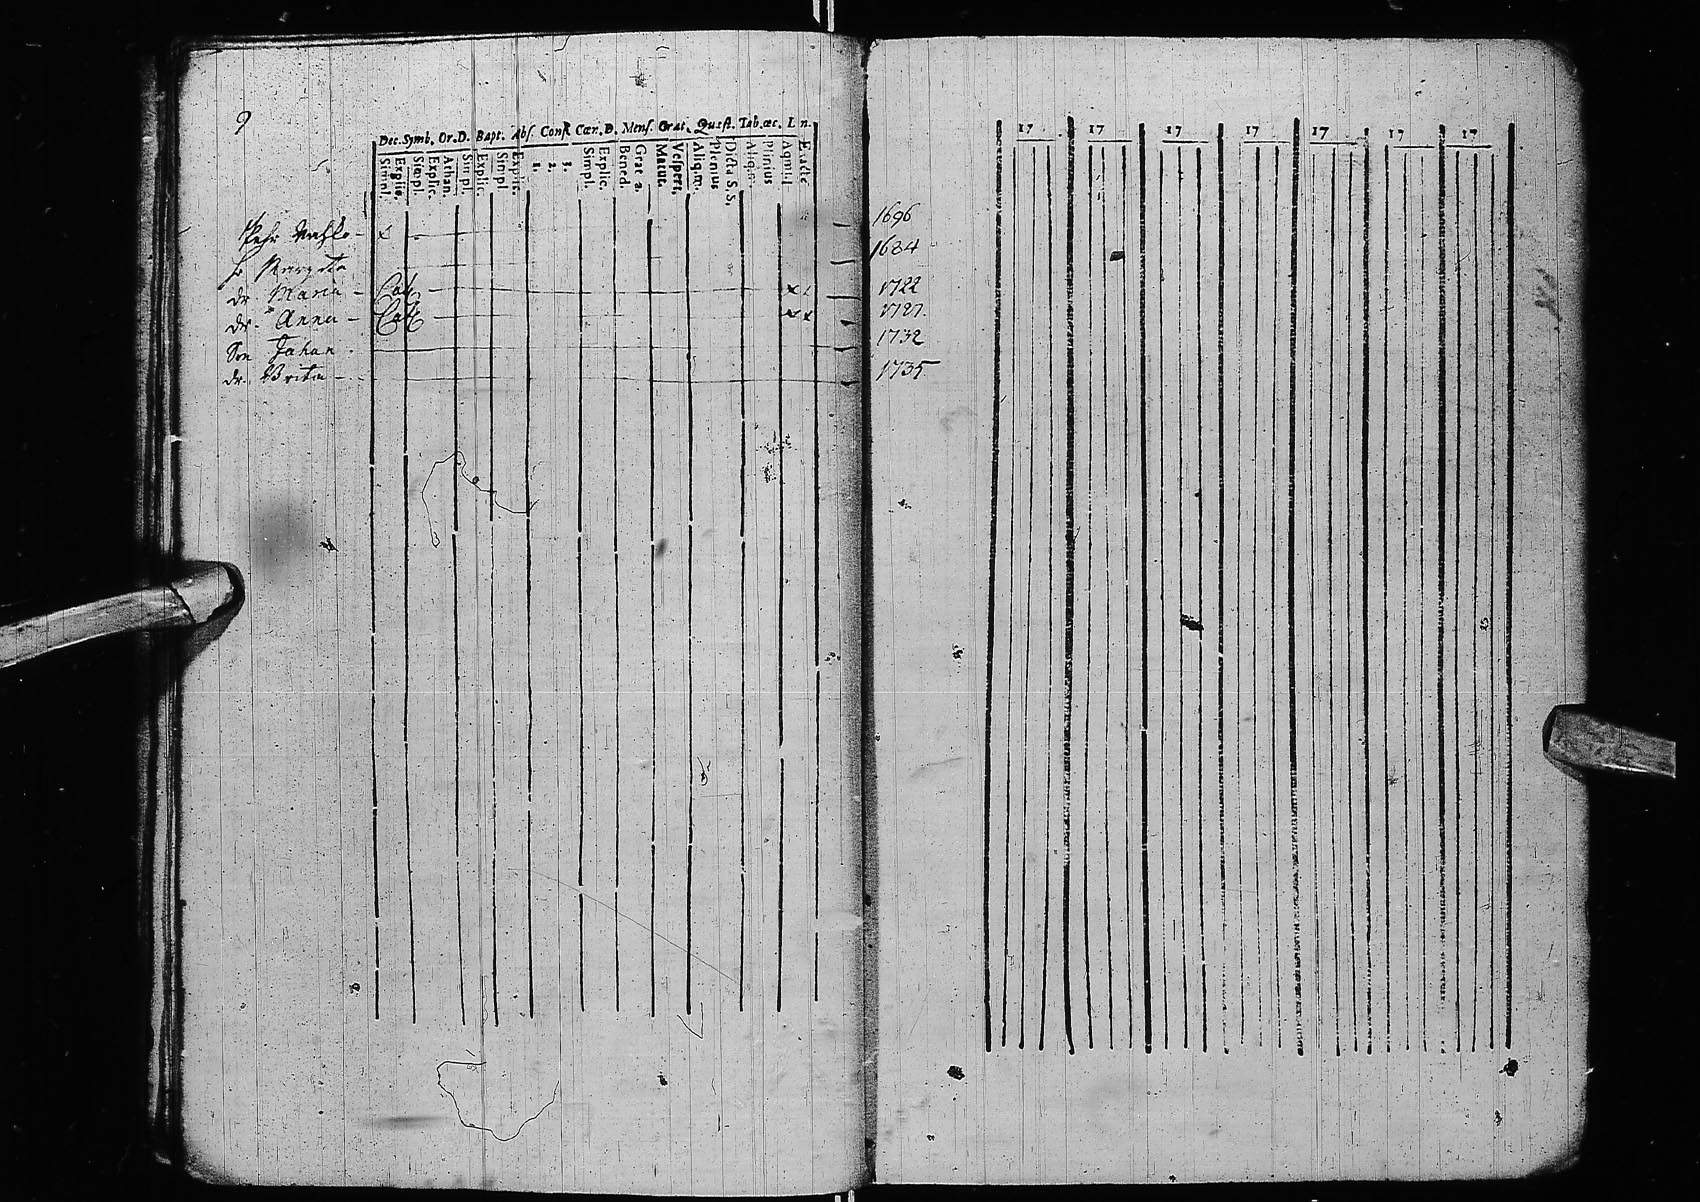 9
Dec. Symb. Or. D. Bapt. Abſ. Conf. Cœn. D. Menſ. Orat. Quæſt. Tab. œc. L n.
Simpl.
Explic.
Simpl.
Explic.
Athan.
Simpl.
Explic.
Simpl.
Explic.
1.
2.
3.
Simpl.
Explic.
Bened.
Matut.
Veſpert.
Plenius
Dicta S. S.
Plinius
Exacte
Pehr 1696
h. Margeta 1684
dr. Maria 1722
dr. Anna 1727.
Son Johan 1732
dr. Brita 1735
17 17 17 17 17 17 17